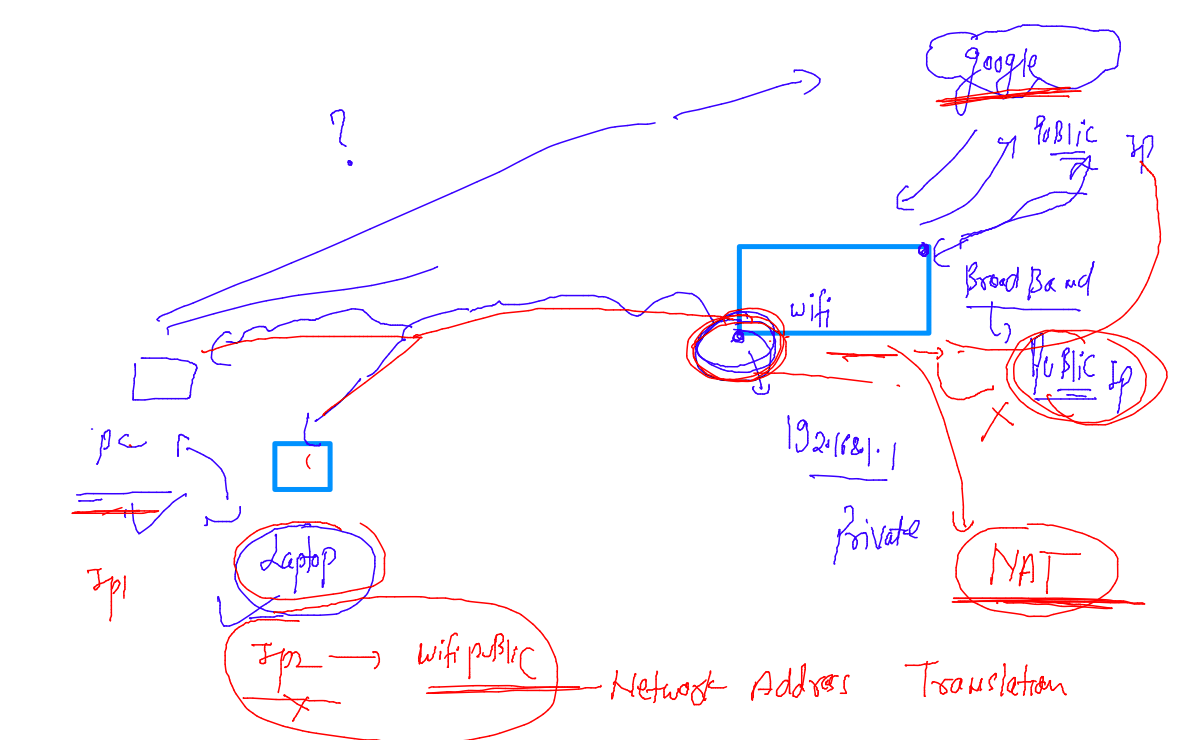 google
?
PUBLIC IP
wifi
BroadBand
PUBLIC IP
192.168.1.1
Private
PC
Laptop
NAT
IP1
IP2 → wifi public
Network Address Translation